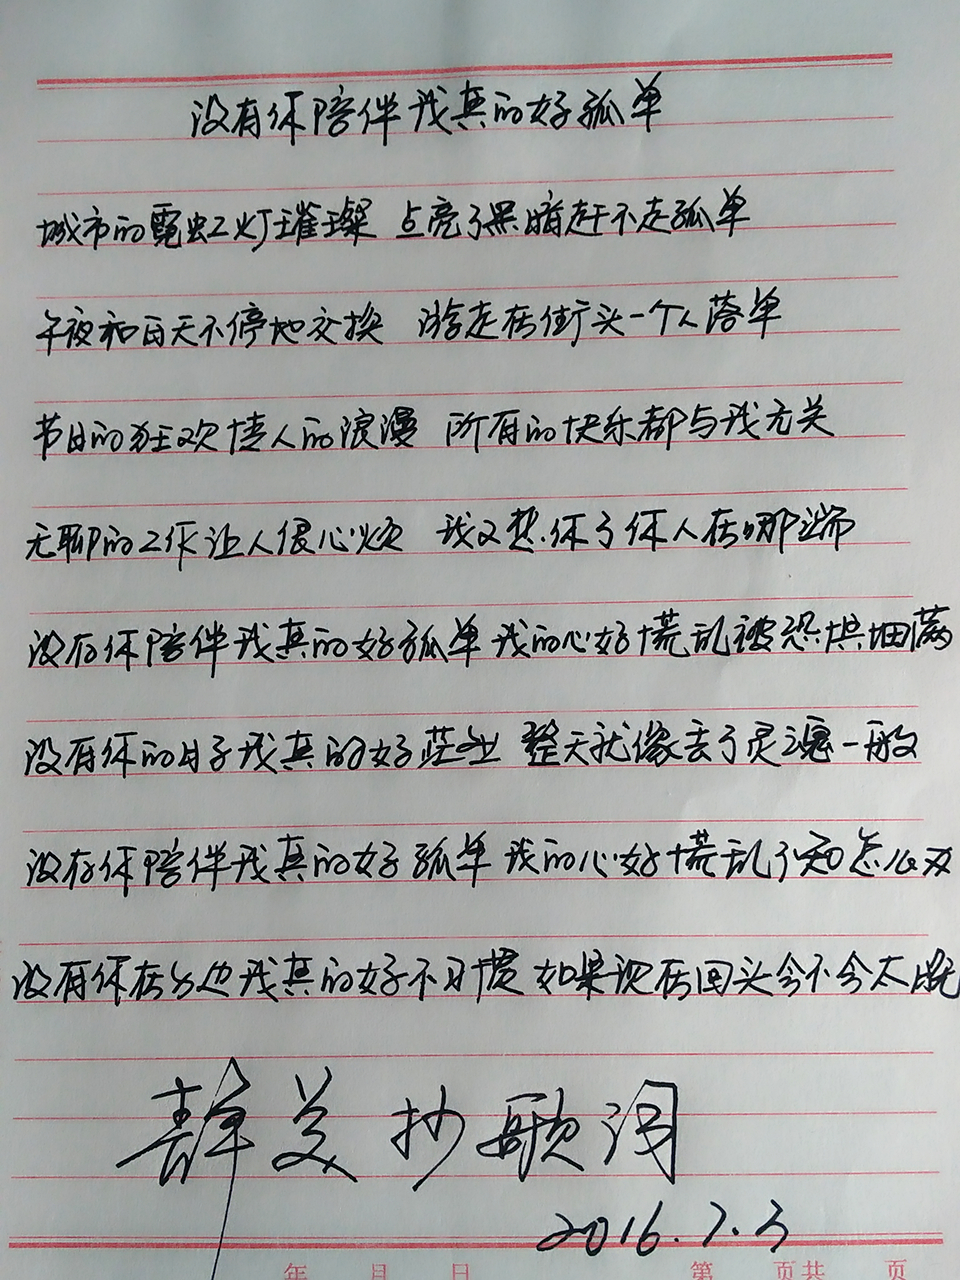 没有你陪伴我真的好孤单
城市的霓虹灯璀璨 点亮了黑暗赶不走孤单
午夜和白天不停地交换 游走在街头一个人落单
节日的狂欢情人的浪漫 所有的快乐都与我无关
无聊的工作让人很心烦 我又想你了你人在哪端
没有你陪伴我真的好孤单 我的心好慌乱被恐惧填满
没有你的日子我真的好茫然 整天就像丢了灵魂一般
没有你陪伴我真的好孤单 我的心好慌乱不知怎么办
没有你在身边我真的好不习惯 如果现在回头会不会太晚
静美抄歌词
2016.7.3
年 月 日 第 页共 页